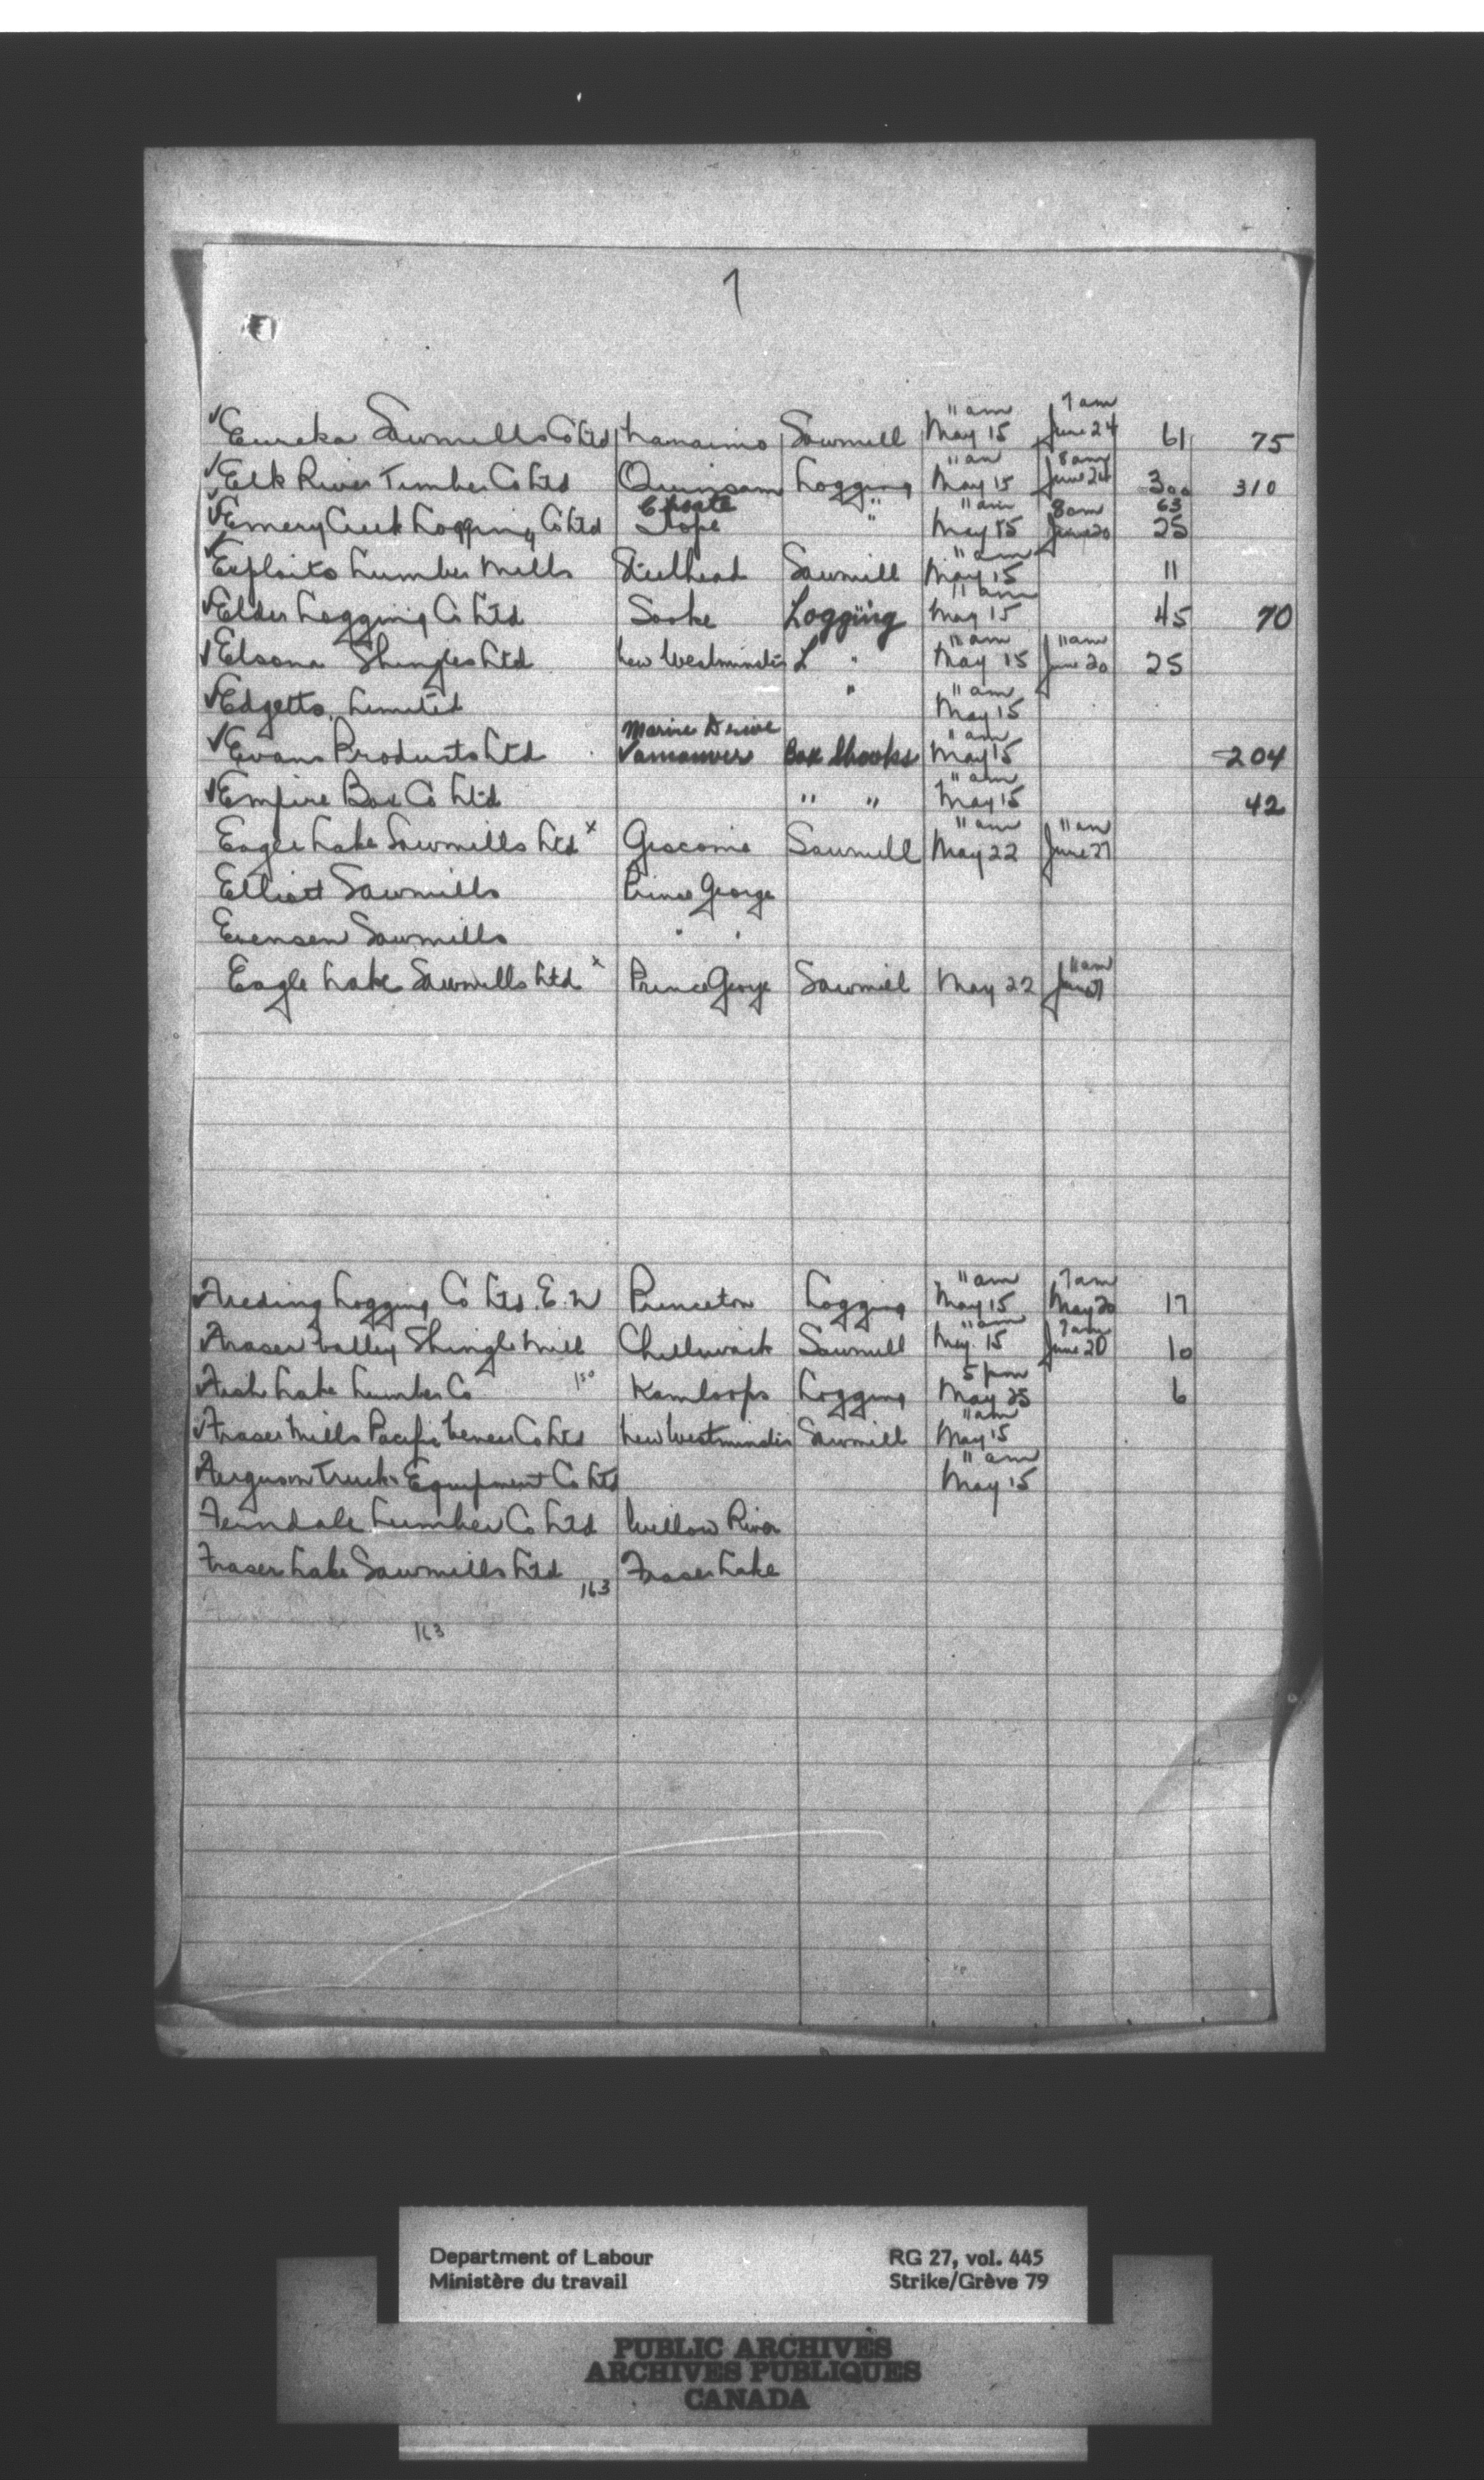 7
✓ Eureka Sawmills Co Ltd Nanaimo Sawmill 11 am May 15 7 am June 24 61 75
✓ Elk River Timber Co Ltd Quinsam Logging 11 am May 15 8 am June 24 300 310
✓ Emery Creek Logging Co Ltd Choate Hope " 11 am May 15 8 am June 20 63 25
✓ Exploits Lumber Mills Steelhead Sawmill 11 am May 15 11
✓ Elder Logging Co Ltd Sooke Logging 11 am May 15 45 70
✓ Elsona Shingles Ltd New Westminster L " 11 am May 15 11 am June 20 25
✓ Edgetts Limited " 11 am May 15
✓ Evans Products Ltd Marine Drive Vancouver Box Shooks 11 am May 15 204
✓ Empire Box Co Ltd " " 11 am May 15 42
Eagle Lake Sawmills Ltd x Giscome Sawmill 11 am May 22 11 am June 27
Elliott Sawmills Prince George
Evensen Sawmills " "
Eagle Lake Sawmills Ltd x Prince George Sawmill May 22 11 am June 27
✓ Logging Co Ltd. E. W Princeton Logging 11 am May 15 7 am May 20 17
✓ Fraser Valley Shingle Mill Chilliwack Sawmill 11 am May 15 7 am June 20 10
✓ Fish Lake Lumber Co 150 Kamloops Logging 5 pm May 25 6
✓ Fraser Mills Pacific Veneer Co Ltd New Westminster Sawmill 11 am May 15
✓ Ferguson Truck & Equipment Co Ltd 11 am May 15
Ferndale Lumber Co Ltd Willow River
Fraser Lake Sawmills Ltd 163 Fraser Lake
163
Department of Labour
Ministère du travail
RG 27, vol. 445
Strike/Grève 79
PUBLIC ARCHIVES
ARCHIVES PUBLIQUES
CANADA